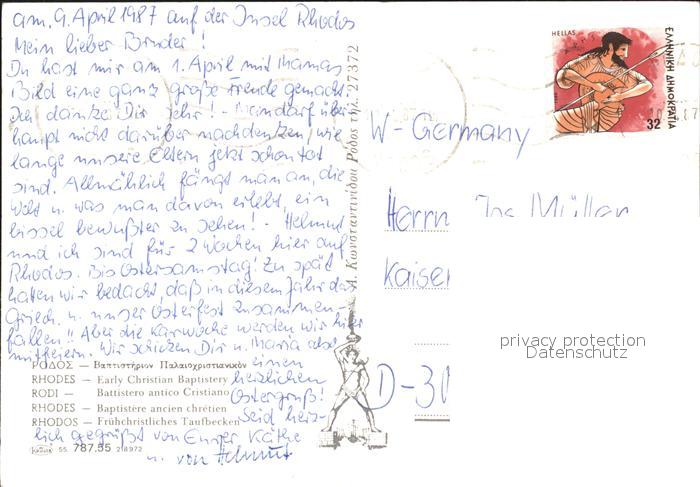 am. 9. April 1987 auf der Insel Rhodos
Mein lieber Bruder!
Du hast mir am 1. April mit Mamas
Bild eine ganz große Freude gemacht.
Ich danke Dir sehr! - Man darf über-
haupt nicht darüber nachdenken, wie
lange unsere Eltern jetzt schon tot
sind. Allmählich fängt man an, die
Welt u. was man davon erlebt, ein
bissel bewußter zu sehen! - Helmut
und ich sind für 2 Wochen hier auf
Rhodos. Bis Ostersamstag! Zu spät
haben wir bedacht, daß in diesem Jahr das
Griech. u. unser Osterfest zusammen-
fallen!! Aber die Karwoche werden wir hier
mitfeiern. Wir schicken Dir u. Maria also
einen
herzlichen
Ostergruß!
Seid herz-
lich gegrüßt von Eurer Käthe
u. von Helmut
ΡΟΔΟΣ — Βαπτιστήριον Παλαιοχριστιανικὸν
RHODES — Early Christian Baptistery
RODI — Battistero antico Cristiano
RHODES — Baptistère ancien chrétien
RHODOS — Frühchristliches Taufbecken
55. 787.55 218972
Α. Κωνσταντινίδου Ρόδος τηλ. 27372
HELLAS
ΕΛΛΗΝΙΚΗ ΔΗΜΟΚΡΑΤΙΑ
32
W-Germany
Herrn Müller
Kaiser
privacy protection
Datenschutz
D-30